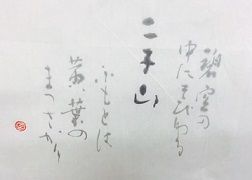 碧空の
中にそびゆる
二子山
ふもとは
黄葉の
まっさかり